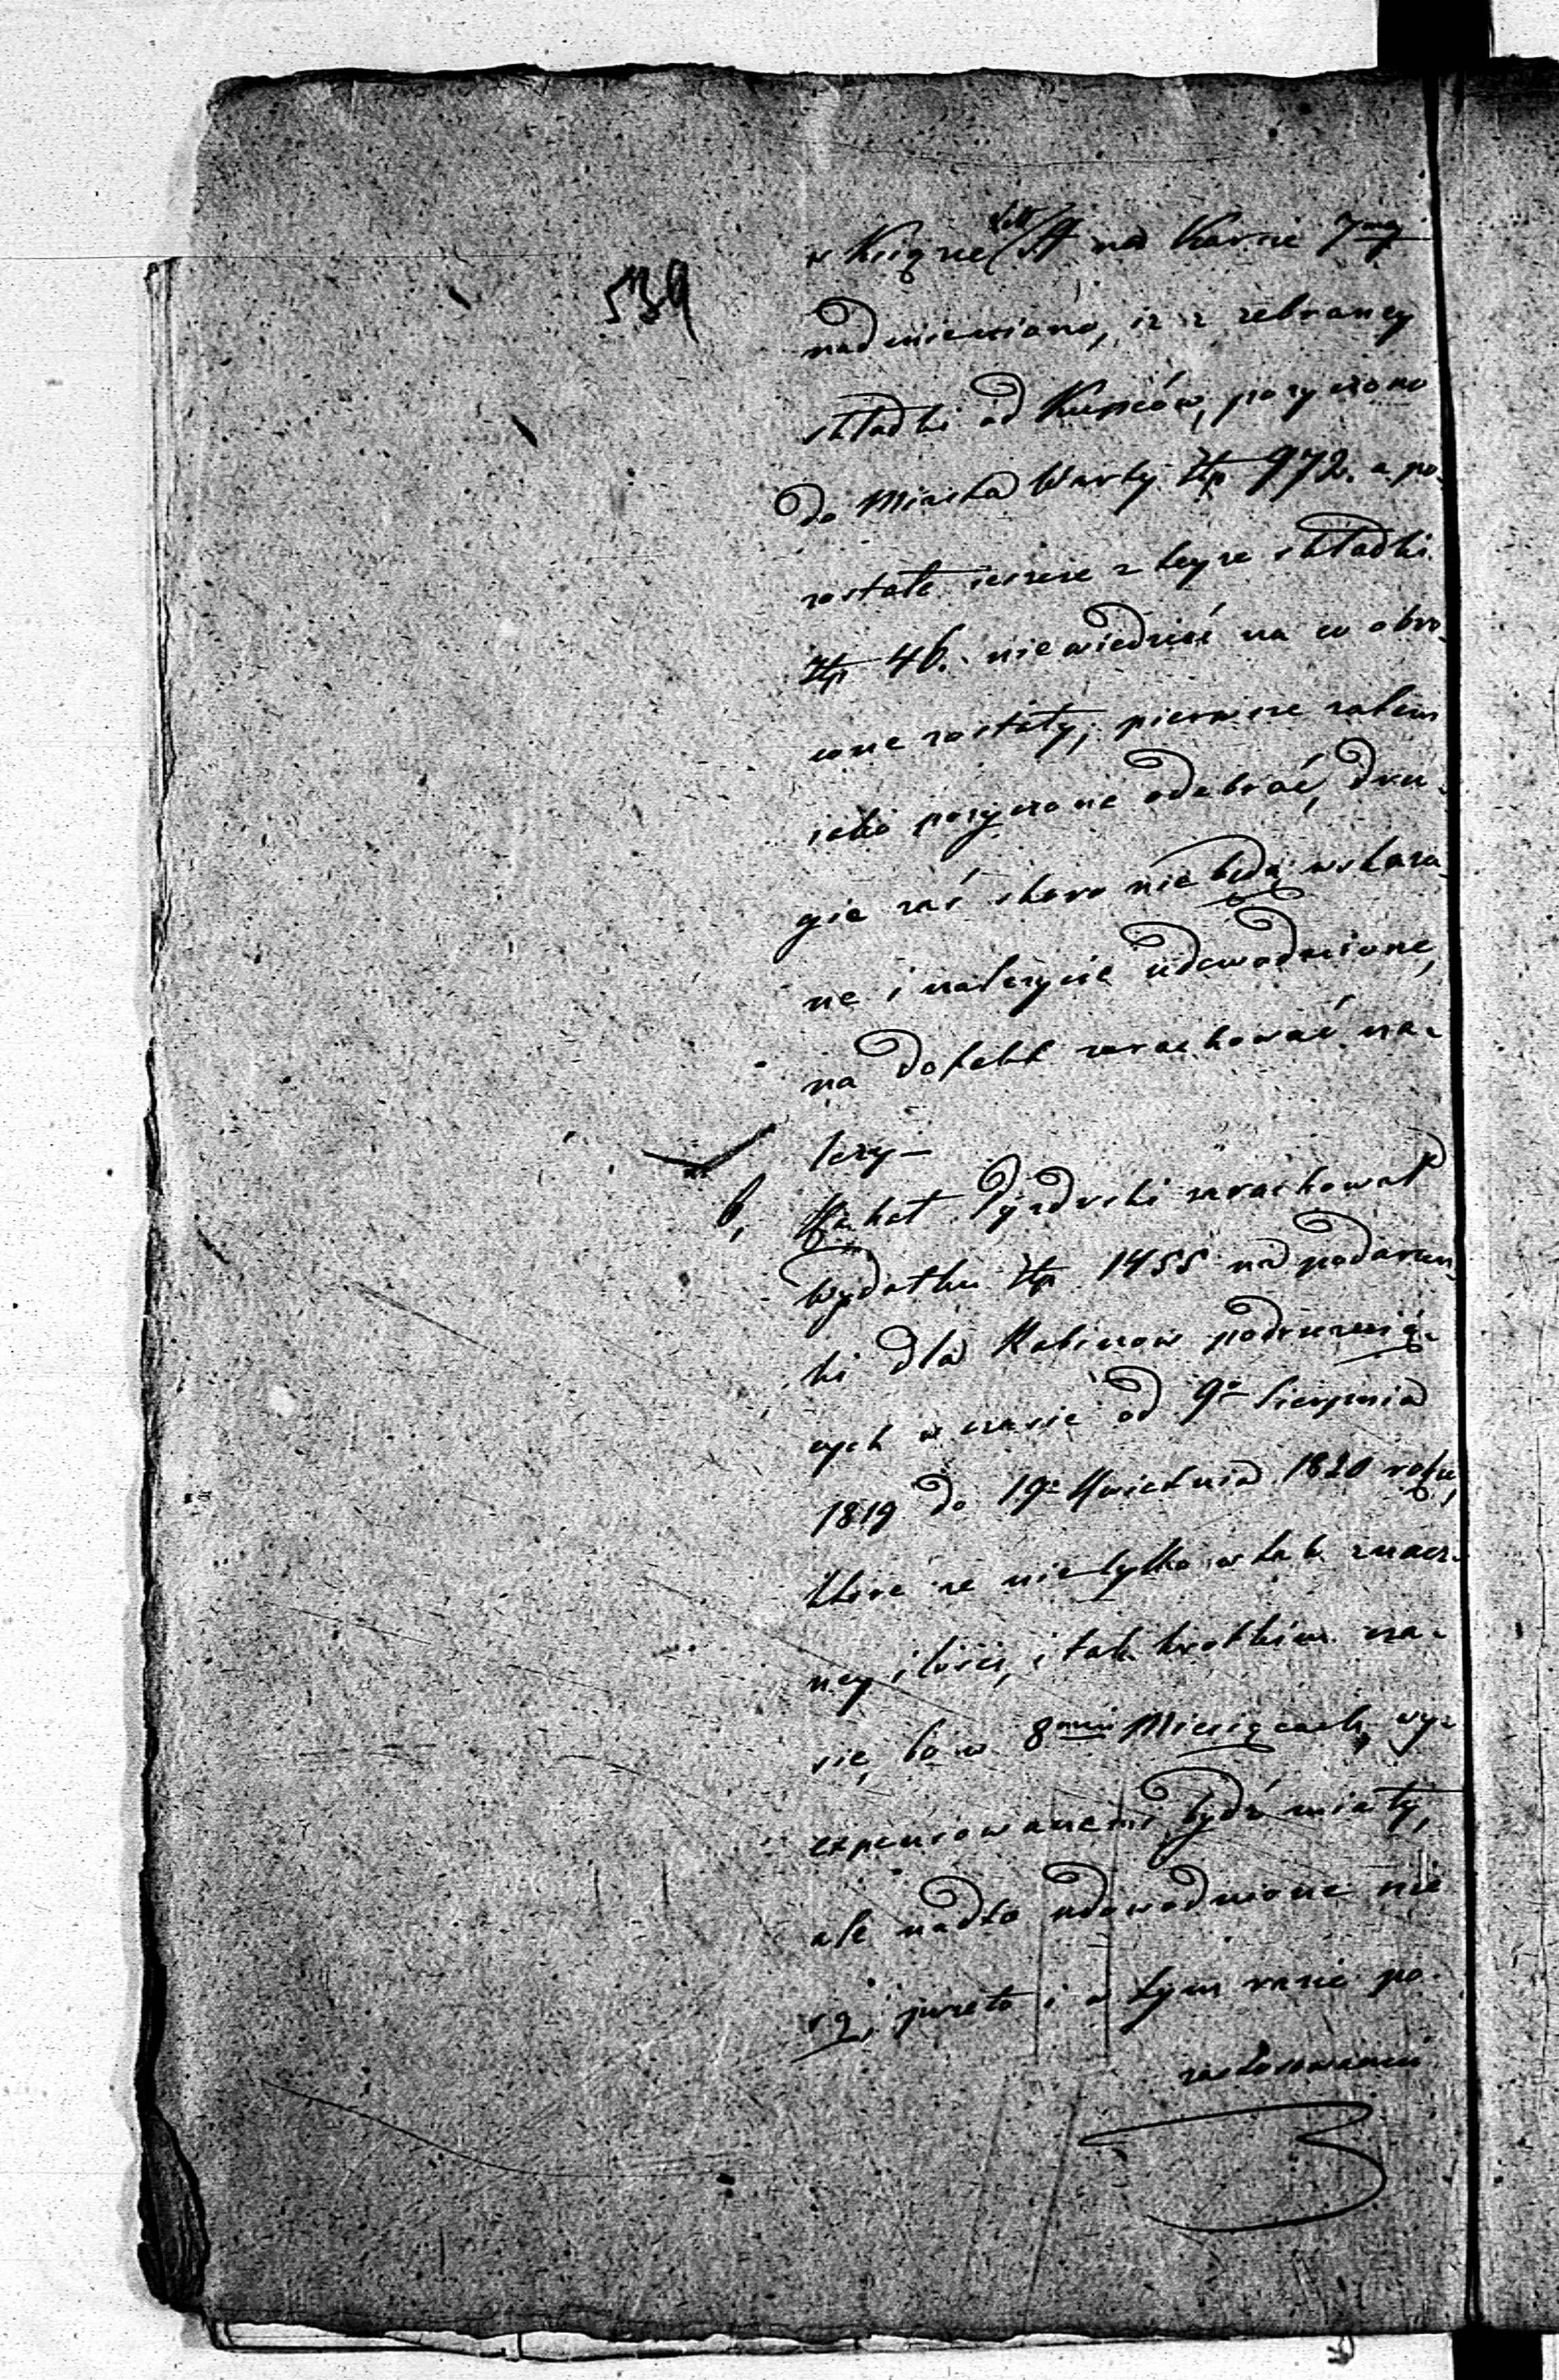 539
w Xiążce Litt. A na Karcie 7mey
nadmieniono, iż z zebraney
składki od Kupców, pozyczono
do Miasta Warty Złp 972. a po-
zostałe ieszcze z teyże składki
Złp 46. niewiedzieć na co obró-
cone zostały; pierwsze zatem
iako pozyczone odebrać, dru-
gie zaś skoro nie będą wskaza-
ne i należycie udowodnione,
na defekt zarachować na-
leży –
6, Kahał Syzdrski zarachował
wydatku Złp 1455 na podarun-
ki dla Rabinow podruzuią-
cych w czasie od 9o Sierpnia
1819 do 19o Kwietnia 1820 roku,
które że nie tylko w tak znacz-
ney ilości, i tak krotkim cza-
sie, bo w 8miu Miesiącach, wy-
expensowanemi bydź miały,
ale nadto udowodnione nie
są, przeto i w tym razie po-
zastosowaniu